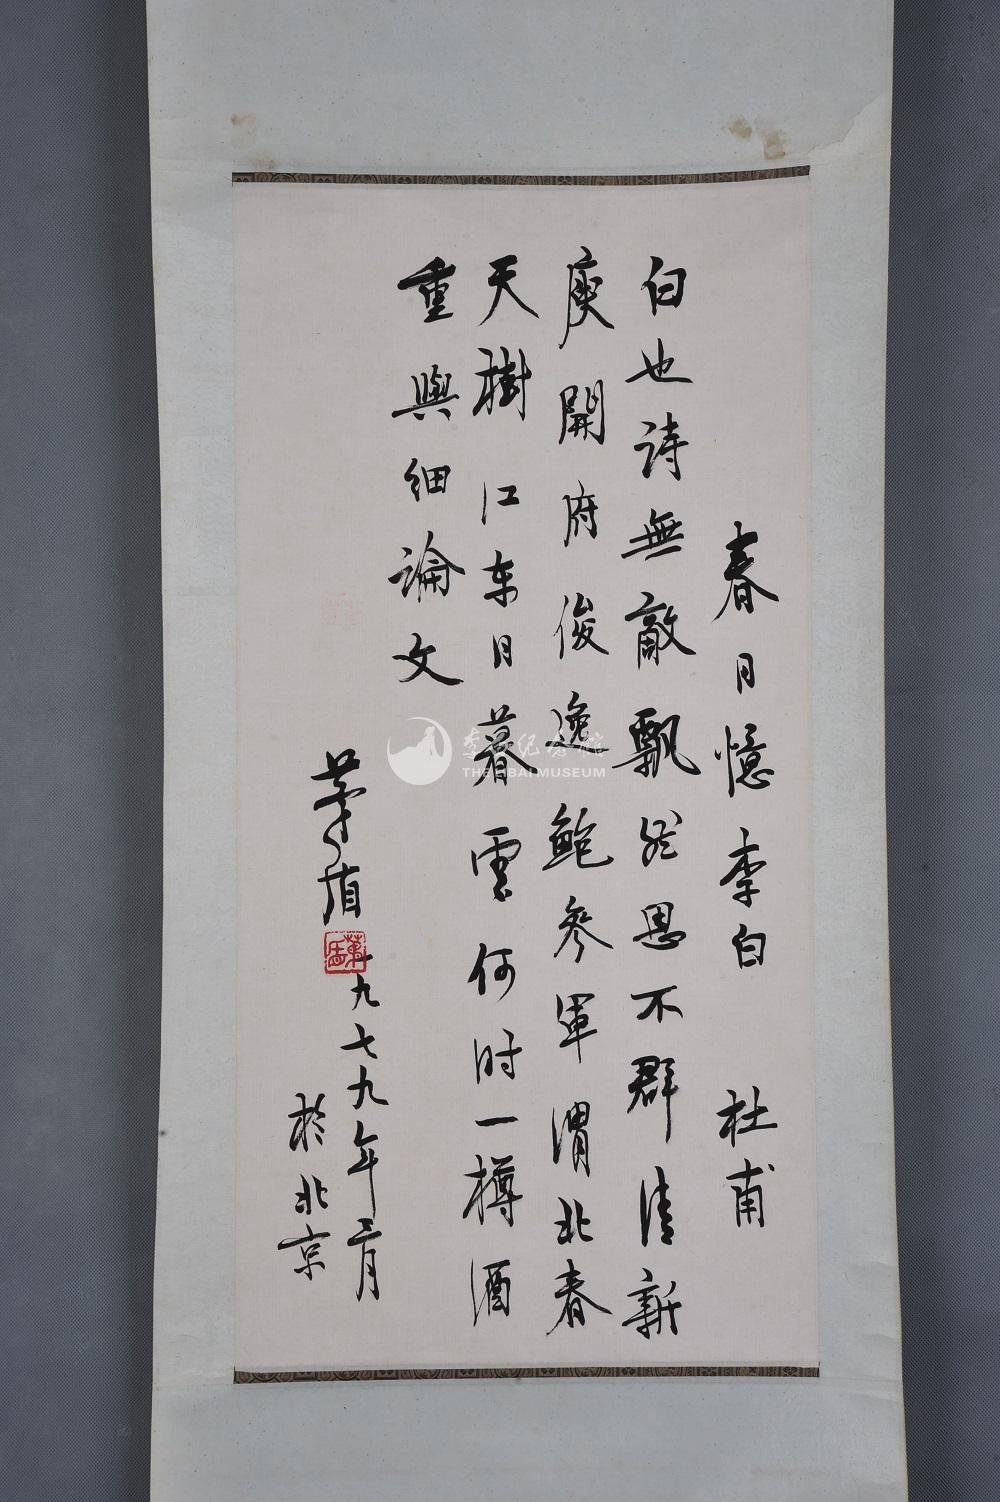 春日憶李白 杜甫
白也詩無敵飄然思不群清新
庾開府俊逸鮑參軍渭北春
天樹江东日暮雲何时一樽酒
重與细論文
茅盾
一九七九年二月
於北京
李白纪念馆
THE LIBAI MUSEUM